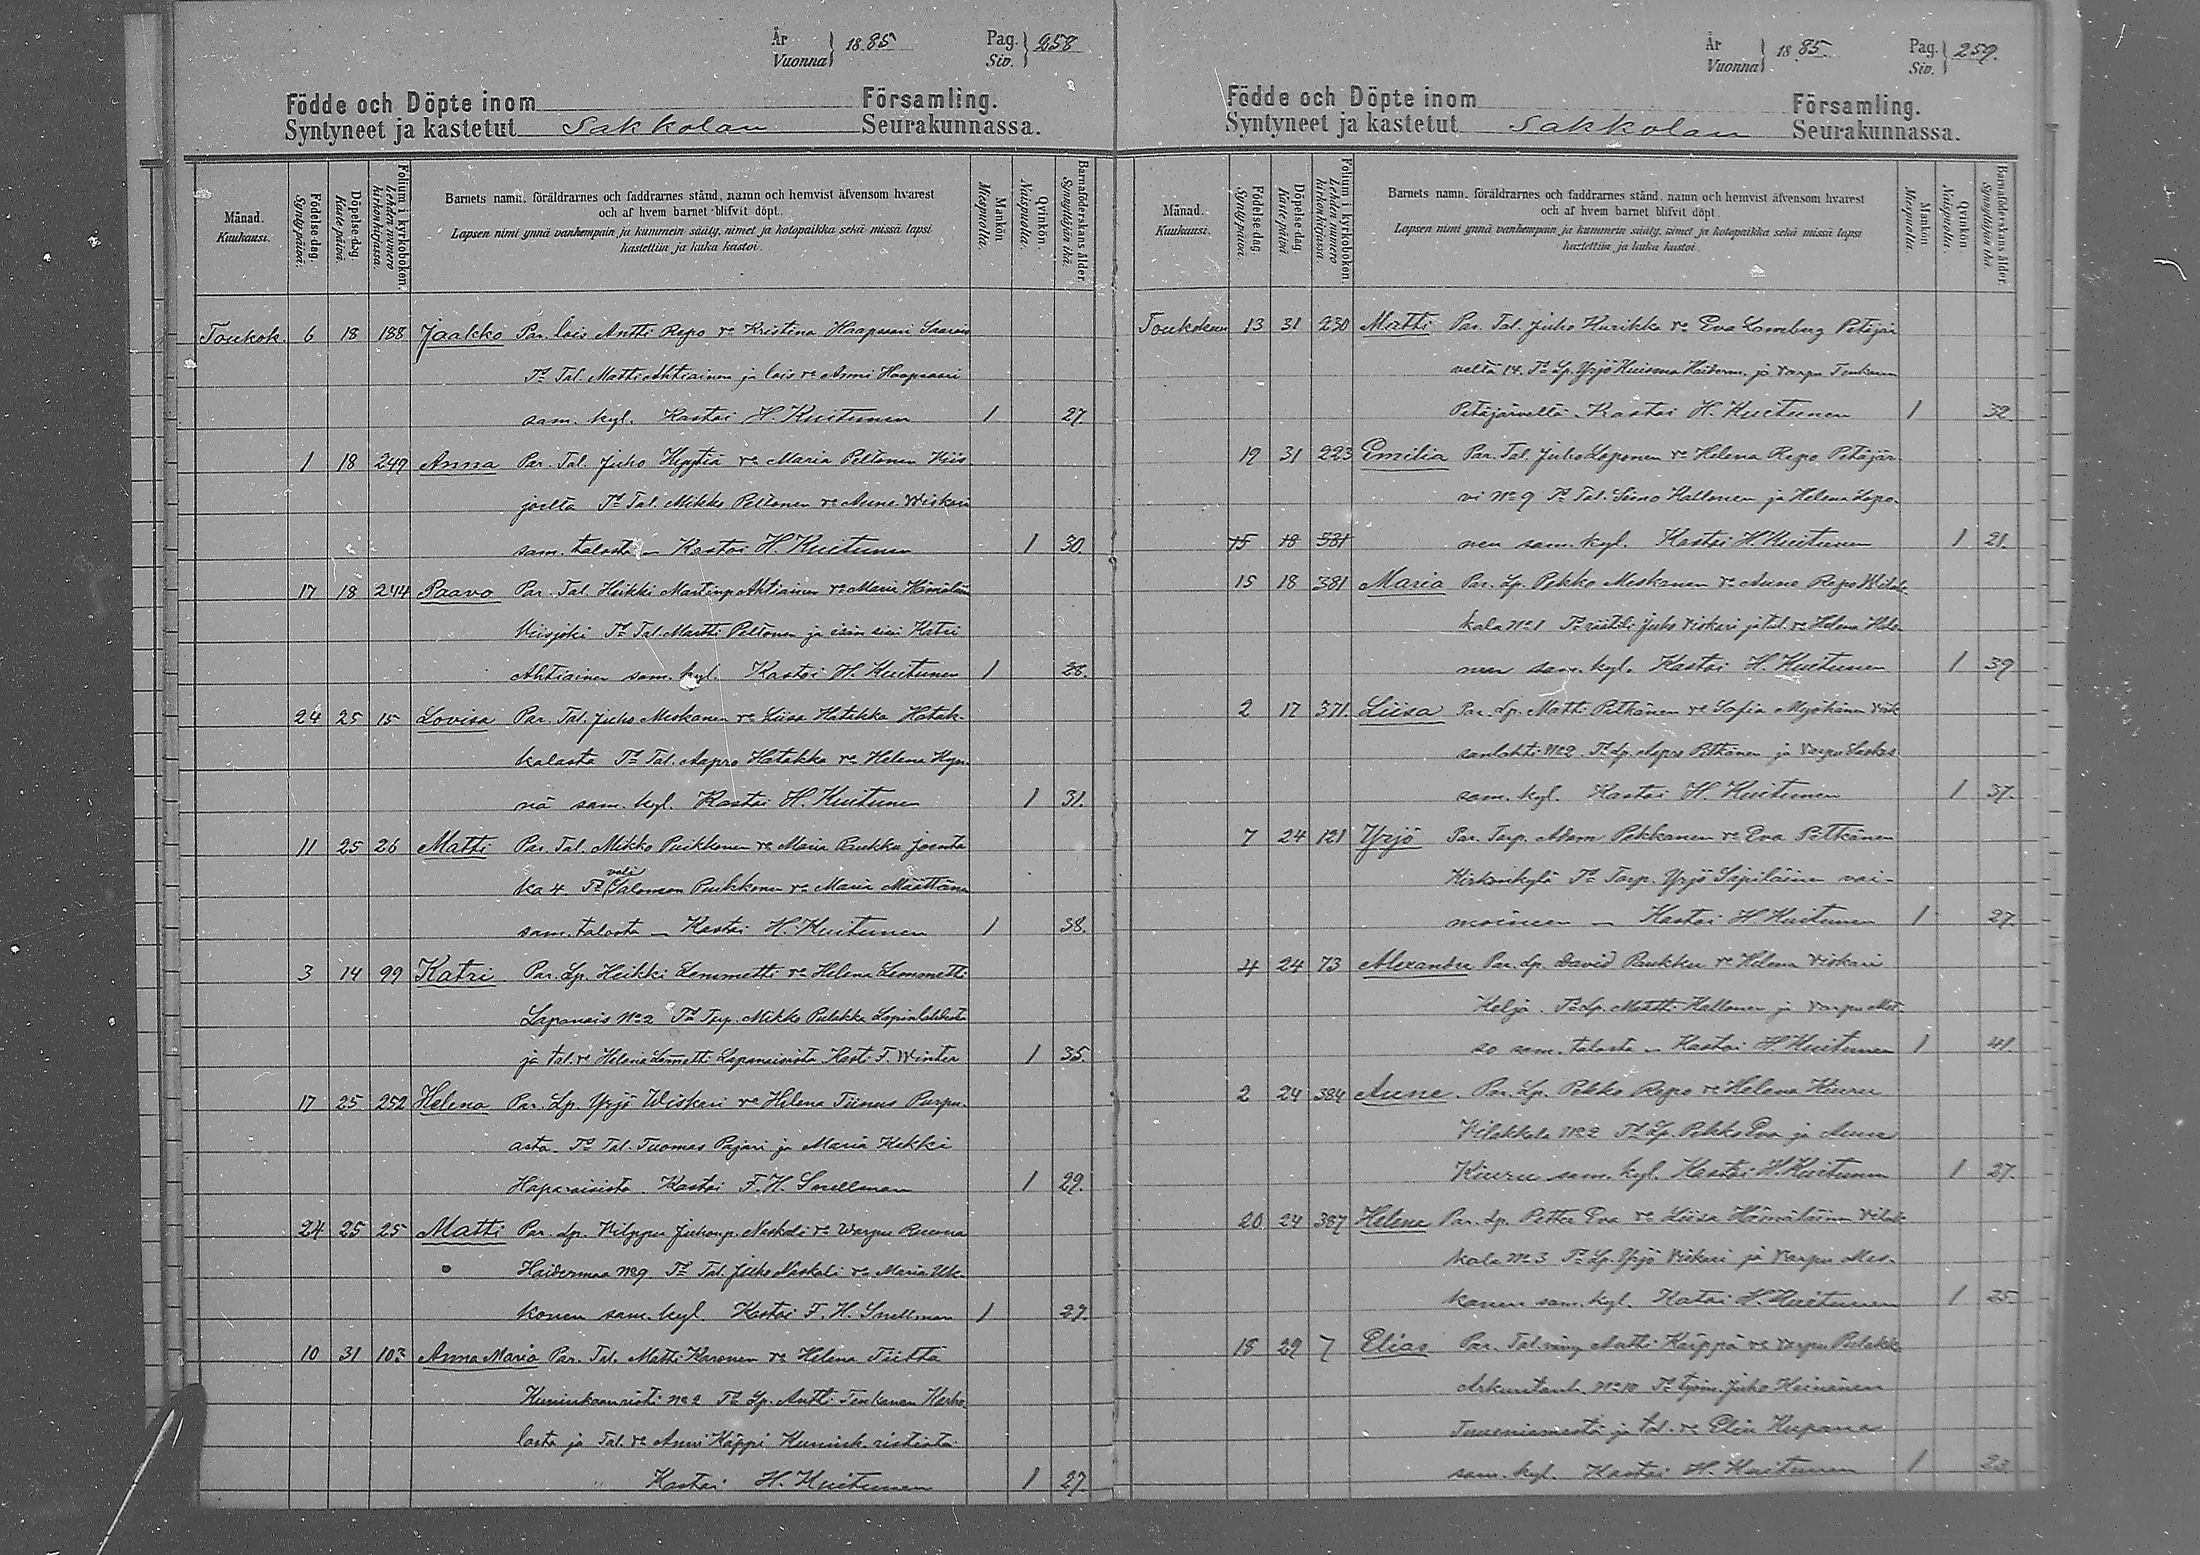 År Vuonna 1885 Pag. Siv. 258
Födde och Döpte inom Församling.
Syntyneet ja kastetut Sakkolan Seurakunnassa.
Månad. Kuukausi.
Födelse-dag. Synty-päivä.
Döpelse-dag. Kaste-päivä.
Folium i kyrkoboken. Lehden numero kirkonkirjassa.
Barnets namn, föräldrarnes och faddrarnes stånd, namn och hemvist äfvensom hvarest
och af hvem barnet blifvit döpt.
Lapsen nimi ynnä vanhempain ja kummein sääty, nimet ja kotopaikka sekä missä lapsi
kastettiin ja kuka kastoi.
Mankön Miespuolia.
Qvinkön. Naispuolia.
Barnaföderskans ålder. Synnyttäjän ikä.
Toukok. 6 18 188 Jaakko Par. lois Antti Repo va Kristina Haapsaari
Td Tal. Matti Ahtiainen ja lois va Anni Haapsaari
sam. kyl. Kastoi H. Kuitunen 1 27.
1 18 249 Anna Par. Tal. Juho Hyytiä va Maria Peltonen Kiis
joelta Td Tal. Mikko Peltonen va Anne Wiskari
sam. talosta – Kastoi H. Kuitunen 1 30.
17 18 244 Paavo Par. Tal. Heikki Martinp. Ahtiainen va Maria Hämäläin
Kiisjoki Td Tal. Martti Peltonen ja Katri
Ahtiainen sam. kyl. Kastoi H. Kuitunen 1 28.
24 25 15 Lovisa Par. Tal. Juho Meskanen va Liisa Hatakka Hatak-
kalasta Td Tal. Aapro Hatakka va Helena Hyn-
nä sam. kyl. Kastoi H. Kuitunen 1 31.
11 25 26 Matti Par. Tal. Mikko Puikkonen va Maria Paukku
ka 4. Td veli Salomon Puikkonen va Maria Määttänen
sam. talosta – Kastoi H. Kuitunen 1 38.
3 14 99 Katri Par. Lp. Heikki Lemmetti va Helena Lemmetti
Lapanais No 2 Td Mikko Pulakka Lapinlahdesta
ja tal. va Helena Lemmetti Lapanaisista Kast. F. Winter 1 35.
17 25 252 Helena Par. Lp. Yrjö Wiskari va Helena Tiinus Purpu-
asta. Td Tal. Tuomas Pajari ja Maria Kekki
Haparaisista. Kastoi F. H. Snellman 1 29.
24 25 25 Matti Par. Lp. Wilppu Juhonp. Naskali va Warpu Ruuna
Haitermaa No 9 Td Tal. Juho Naskali va Maria Uk-
konen sam. kyl. Kastoi F. H. Snellman 1 27.
10 31 103 Anna Maria Par. Tal. Matti Karonen va Helena Tiitta
Kuninkaanristi No 2 Td Lp. Antti Tenkanen
lasta ja Tal. va Anni Käppi Kunink. rististä
Kastoi H. Kuitunen 1 27.
År Vuonna 1885. Pag. Siv. 259.
Födde och Döpte inom Församling.
Syntyneet ja kastetut Sakkolan Seurakunnassa.
Månad. Kuukausi.
Födelse-dag. Synty-päivä.
Döpelse-dag. Kaste-päivä.
Folium i kyrkoboken. Lehden numero kirkonkirjassa.
Barnets namn, föräldrarnes och faddrarnes stånd, namn och hemvist äfvensom hvarest
och af hvem barnet blifvit döpt.
Lapsen nimi ynnä vanhempain ja kummein sääty, nimet ja kotopaikka sekä missä lapsi
kastettiin ja kuka kastoi.
Mankön Miespuolia.
Qvinkön. Naispuolia.
Barnaföderskans ålder. Synnyttäjän ikä.
Toukokuu 13 31 230 Matti Par. Tal. Juho Kurikka va Eva Lomberg Petäjär
veltä 14. Td Lp. Yrjö Kuisma Haiderm. ja Varpu
Petäjärveltä. Kastoi H. Kuitunen 1 32
19 31 223 Emilia Par. Tal. Juho Loponen va Helena Repo Petäjär
vi No 9 Td Tal. Simo Hallonen ja Helena Lopo-
15 18 581 nen sam. kyl. Kastoi H. Kuitunen 1 21.
15 18 381 Maria Par. Lp. Pekko Meskanen va Anne Repo Wilak-
kala No 1 Td räätäli Juho Viskari ja tal. va Helena
nen sam. kyl. Kastoi H. Kuitunen 1 39
2 17 371. Liisa Par. Lp. Matti Pitkänen va Sofia Myöhänen Viik
sanlahti No 2. Td Lp. Aapro Pitkänen ja Varpu
sam. kyl. Kastoi H. Kuitunen 1 37.
7 24 121 Yrjö Par. Torp. Adam Pekkanen va Eva Pitkänen
Kirkonkylä Td Torp. Yrjö Sipiläinen vai-
moineen – Kastoi H Kuitunen 1 27.
4 24 73 Alexander Par. Lp. David Paukku va Helena Viskari
Kelja. Td Lp. Matti Hallonen ja Varpu
so sam. talosta – Kastoi H Kuitunen 1 41.
2 24 384 Anne. Par. Lp. Pekko Repo va Helena Kiuru
Vilakkala No 2 Td Lp. Pekko Eva ja Anna
Kiuru sam. kyl. Kastoi H. Kuitunen 1 27.
20 24 387 Helena Par. Lp. Petter Eva va Liisa Hämäläinen Vilak
kala No 3 Td Lp. Yrjö Viskari ja Varpu Mes-
kanen sam. kyl. Katoi H. Kuitunen 1 25.
15 29 7 Elias Par. Tal. Antti Käppä va Varpu Pulakka
No 10 Td Juho Heinänen
ja tal. va Elin
sam. kyl. Kastoi H. Kuitunen 1 23.